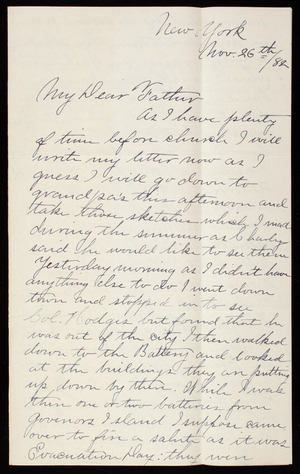 New York
Nov. 26th/82
My Dear Father
As I have plenty
of time before church I will
write my letter now as I
guess I will go down to
grandpa's this afternoon and
take those sketches which I made
during the summer as Charly
said he would like to see them
Yesterday morning as I didn't have
anything else to do I went down
town and stopped in to see
Col. Hodges but found that he
was out of the city I then walked
down to the Battery and looked
at the buildings they are putting
up down by there. While I was
there one or two batteries from
Govenors Island I suppose came
over to fire a salute as it was
Evacuation Day; they were